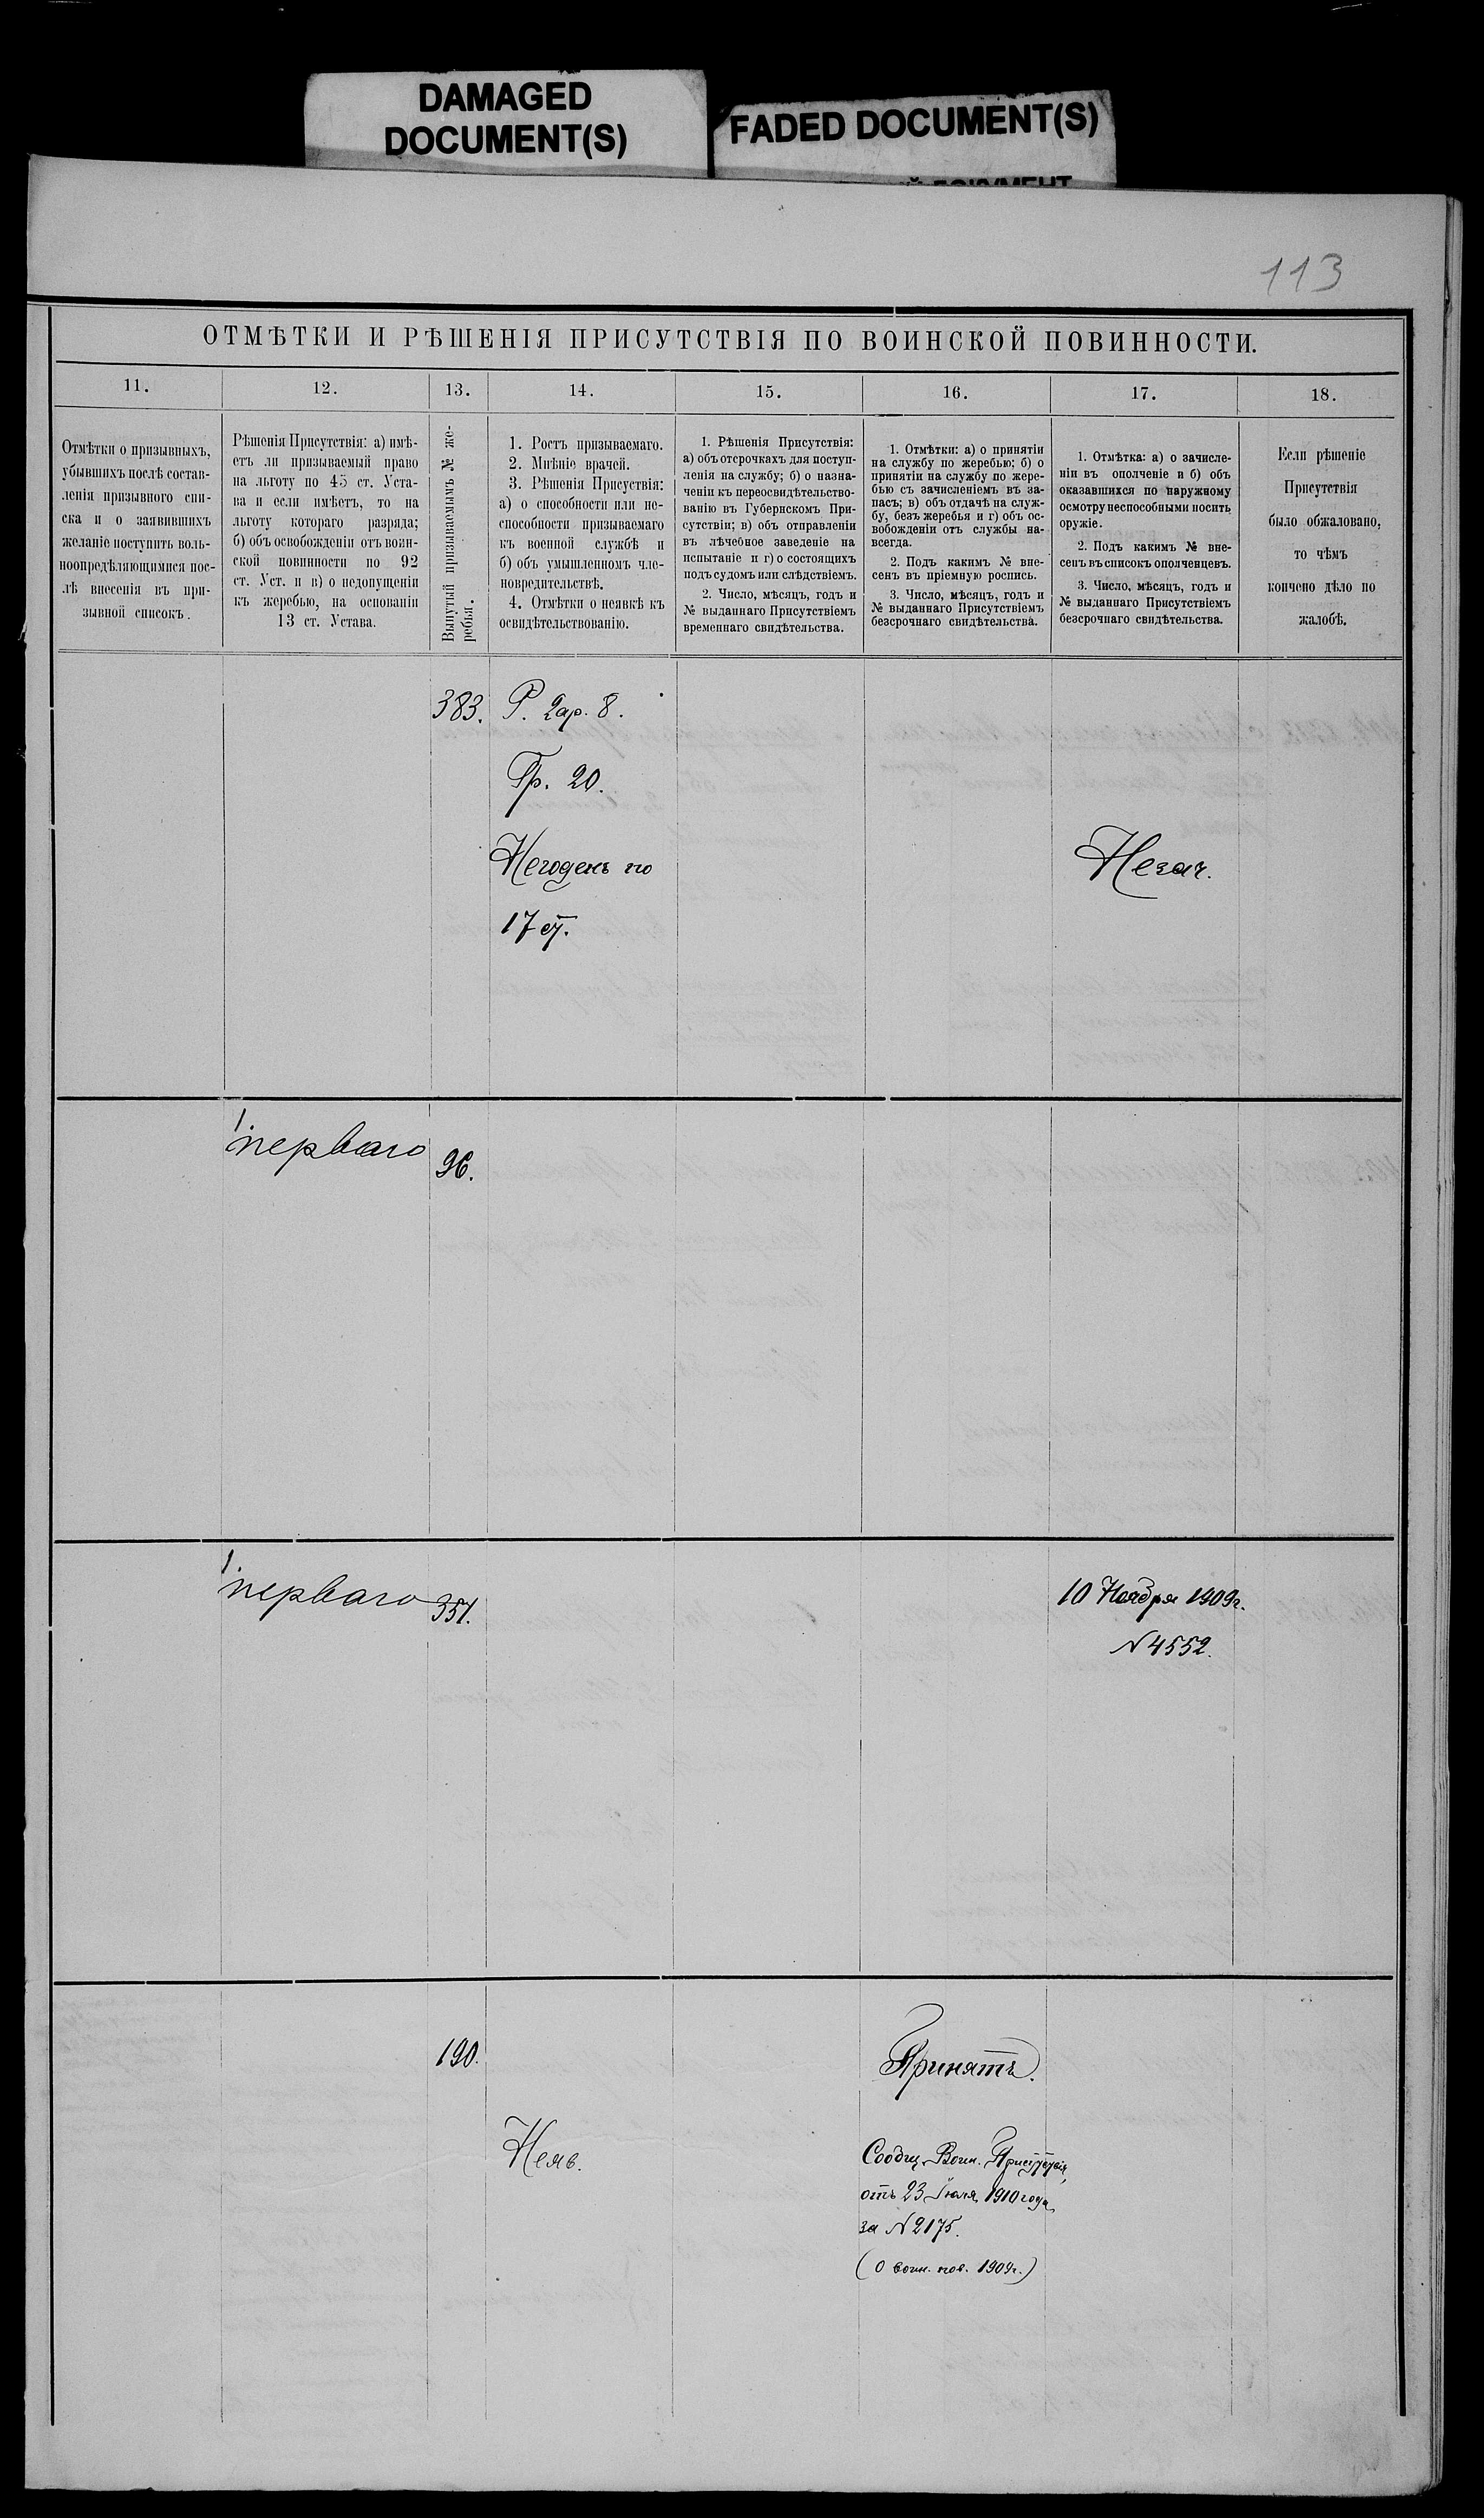 DAMAGED
DOCUMENT(S)
FADED DOCUMENT(S)
113
ОТМѢТКИ И РѢШЕНІЯ ПРИСУТСТВІЯ ПО ВОИНСКОЙ ПОВИННОСТИ.
11.
12.
13.
14.
15.
16.
17.
18.
Отмѣтки о призывныхъ,
убывшихъ послѣ состав-
ленія призывного спи-
ска и о заявившихъ
желаніе поступить воль-
ноопредѣляющимися пос-
лѣ внесенія въ при-
зывной списокъ.
Рѣшенія Присутствія: а) имѣ-
етъ ли призываемый право
на льготу по 45 ст. Уста-
ва и если имѣетъ, то на
льготу котораго разряда;
б) объ освобожденіи отъ воин-
ской повинности по 92
ст. Уст. и в) о недопущеніи
къ жеребью, на основаніи
13 ст. Устава.
Вынутый призываемымъ № же-
ребья.
1. Ростъ призываемаго.
2. Мнѣніе врачей.
3. Рѣшенія Присуствія:
а) о способности или не-
способности призываемаго
къ военной службѣ и
б) объ умышленномъ чле-
новредительствѣ.
4. Отмѣтки о неявкѣ къ
освидѣтельствованію.
1. Рѣшенія Присутствія:
а) объ отсрочкахъ для поступ-
ленія на службу; б) о назна-
ченіи къ переосвидѣтельство-
ванію въ Губернскомъ При-
сутствіи; в) объ отправленіи
въ лѣчебное заведеніе на
испытаніе и г) о состоящихъ
подъ судомъ или слѣдствіемъ.
2. Число, мѣсяцъ, годъ и
№ выданнаго Присутствіемъ
временнаго свидѣтельства.
1. Отмѣтки: а) о принятіи
на службу по жеребью; б) о
принятіи на службу по жере-
бью съ зачисленіемъ въ за-
пасъ; в) объ отдачѣ на служ-
бу, безъ жеребья и г) объ ос-
вобожденіи отъ службы на-
всегда.
2. Подъ какимъ № вне-
сенъ въ пріемную роспись.
3. Число, мѣсяцъ, годъ и
№ выданнаго Присутствіемъ
безсрочнаго свидѣтельства.
1. Отмѣтка: а) о зачисле-
ніи въ ополченіе и б) объ
оказавшихся по наружному
осмотру неспособными носить
оружіе.
2. Подъ какимъ № вне-
сенъ въ списокъ ополченцевъ.
3. Число, мѣсяцъ, годъ и
№ выданнаго Присутствіемъ
безсрочнаго свидѣтельства.
Если рѣшеніе
Присутствія
было обжаловано,
то чѣмъ
кончено дѣло по
жалобѣ.
383.
Р. 2ар. 8.
Гр. 20.
Негоденъ по
17 ст.
Незач.
1.
перваго
96.
1.
перваго
351.
10 Ноября 1909г.
№ 4552.
190.
Неяв.
Принятъ.
Сообщ. Воин. Присутствія,
отъ 23 Іюля 1910 года
за № 2175.
(О воин. пов. 1909г.)